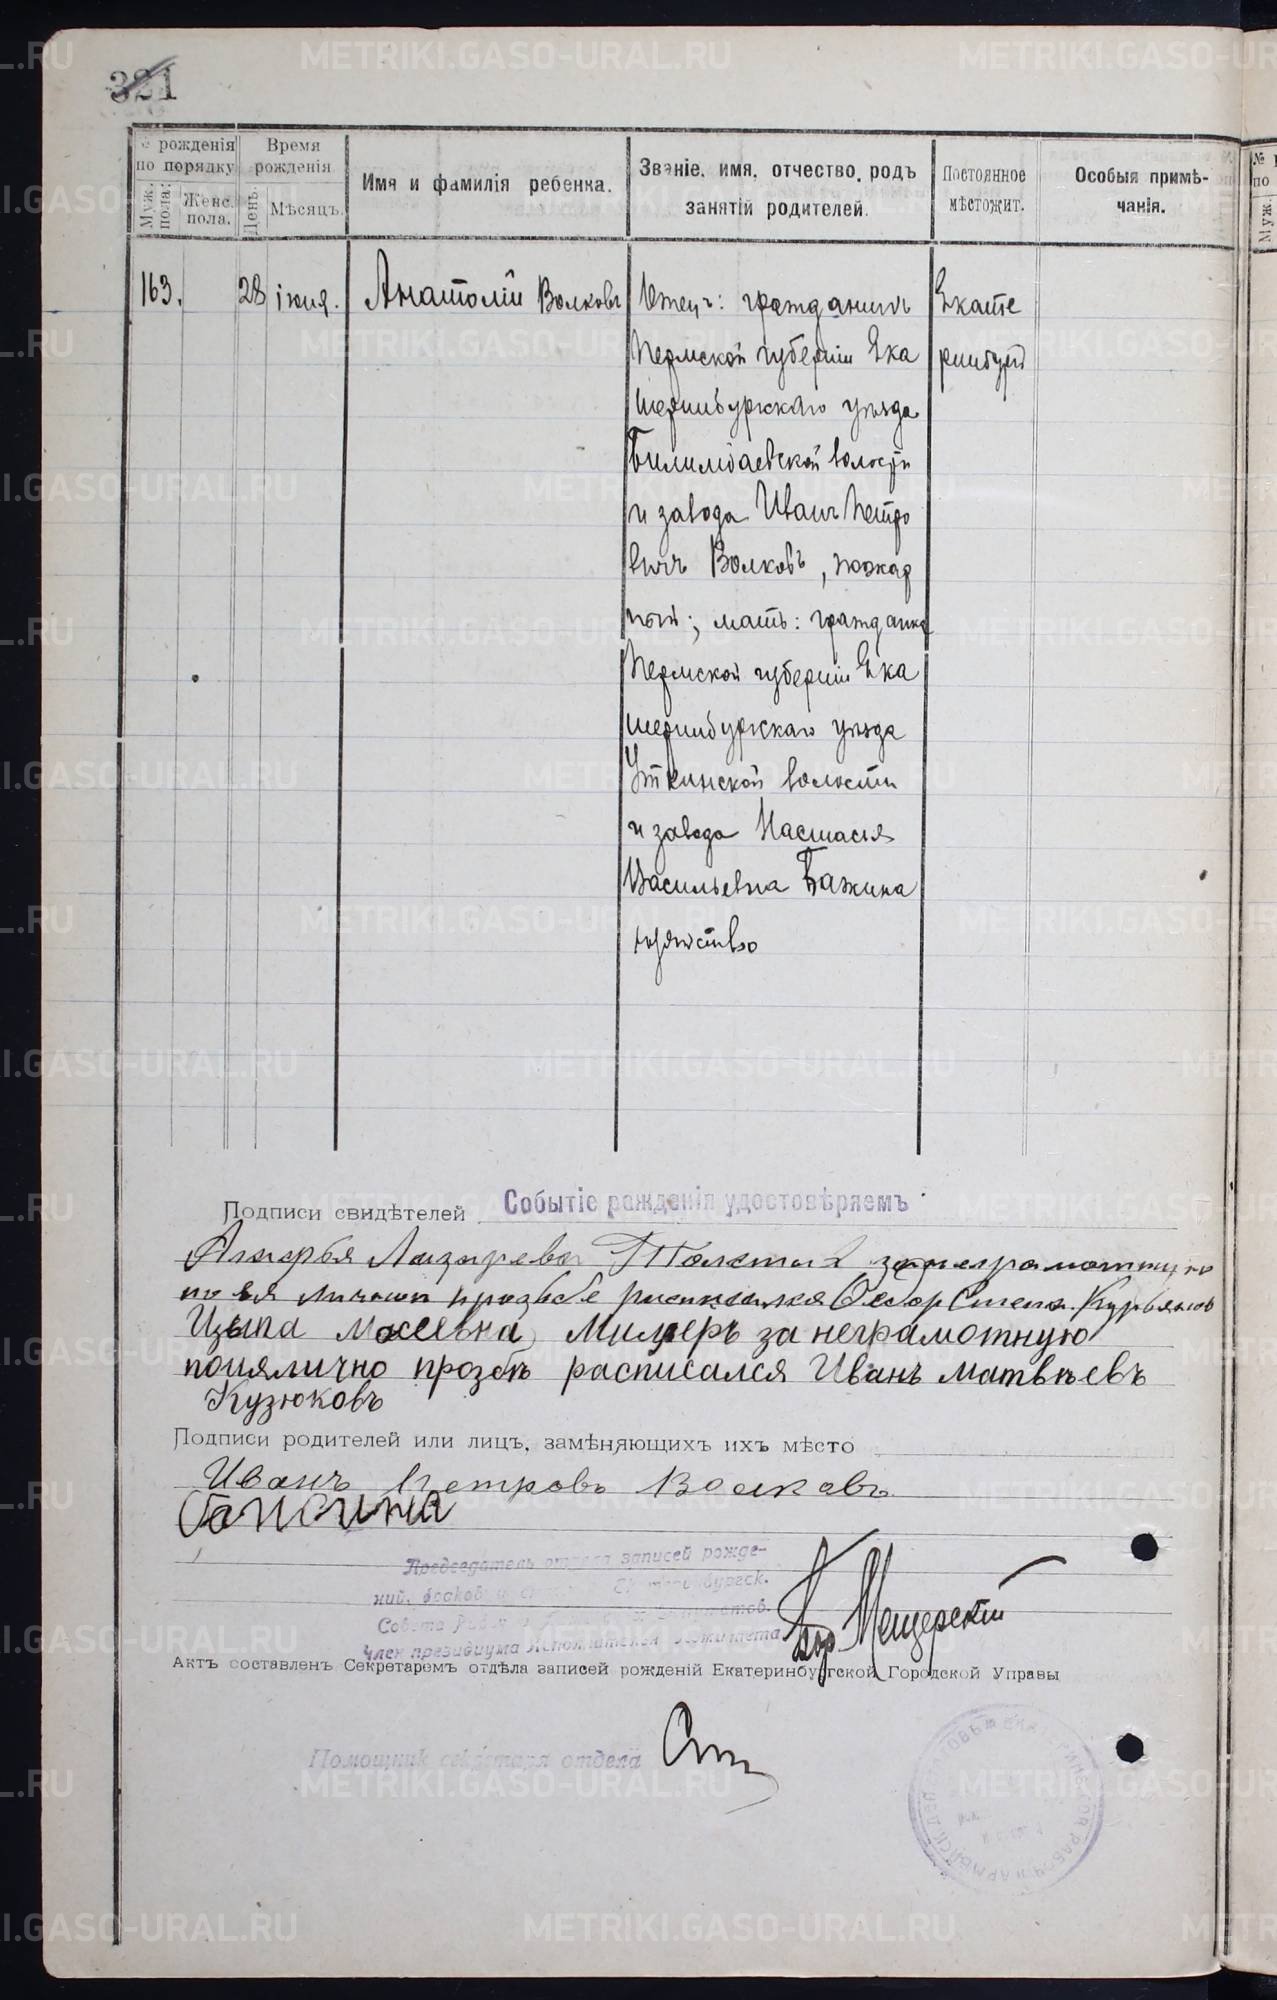 321
№ рожденія по порядку
Муж. пола.
Женс. пола.
Время рожденія.
День.
Мѣсяцъ.
Имя и фамилія ребенка.
Званіе, имя, отчество, родъ занятій родителей.
Постоянное мѣстожит.
Особыя примѣчанія.
163.
28
іюня.
Анатолій Волковъ
Отецъ: гражданинъ
Пермской губерніи Ека
теринбургскаго уѣзда
Билимбаевской волости
и завода Иванъ Петро
вичъ Волковъ, пожар
ный; мать: гражданка
Пермской губерніи Ека
теринбургскаго уѣзда
Уткинской волости
и завода Настасія
Васильевна Бажина
Екате
ринбургъ
Подписи свидѣтелей
Событіе рожденія удостовѣряемъ
Лазарева Толстых за неграмотную
по ея личной прозьбе росписался Федор Степа.
Цыпа Мосеевна Милдеръ за неграмотную
поиялично прозбѣ расписался Иванъ Матвѣевъ
Кузюковъ
Подписи родителей или лицъ, замѣняющихъ ихъ мѣсто
Иванъ Петровъ Волковъ
Бажина
Председатель отдела записей рожде-
ний, браков
Екатеринбургск.
Совета Рабоч
Член президиума Исполнительн Комитета
Мещерскій
Актъ составленъ Секретаремъ отдѣла записей рожденій Екатеринбургской Городской Управы
Помощник секретаря отдела
METRIKI.GASO-URAL.RU